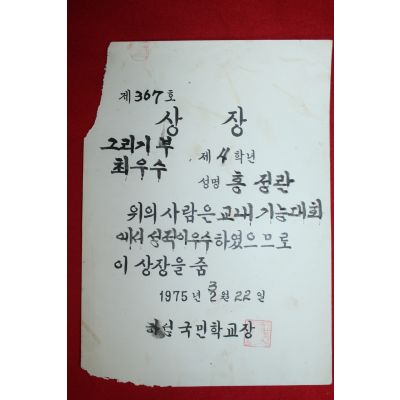 제 367 호
상 장
그리기 부
최우수
제 4 학년
성명 홍 정란
위의 사람은 교내 기능대회
에서 성적이 우수 하였으므로
이 상장을 줌
1975 년 3 월 22 일
국민학교장